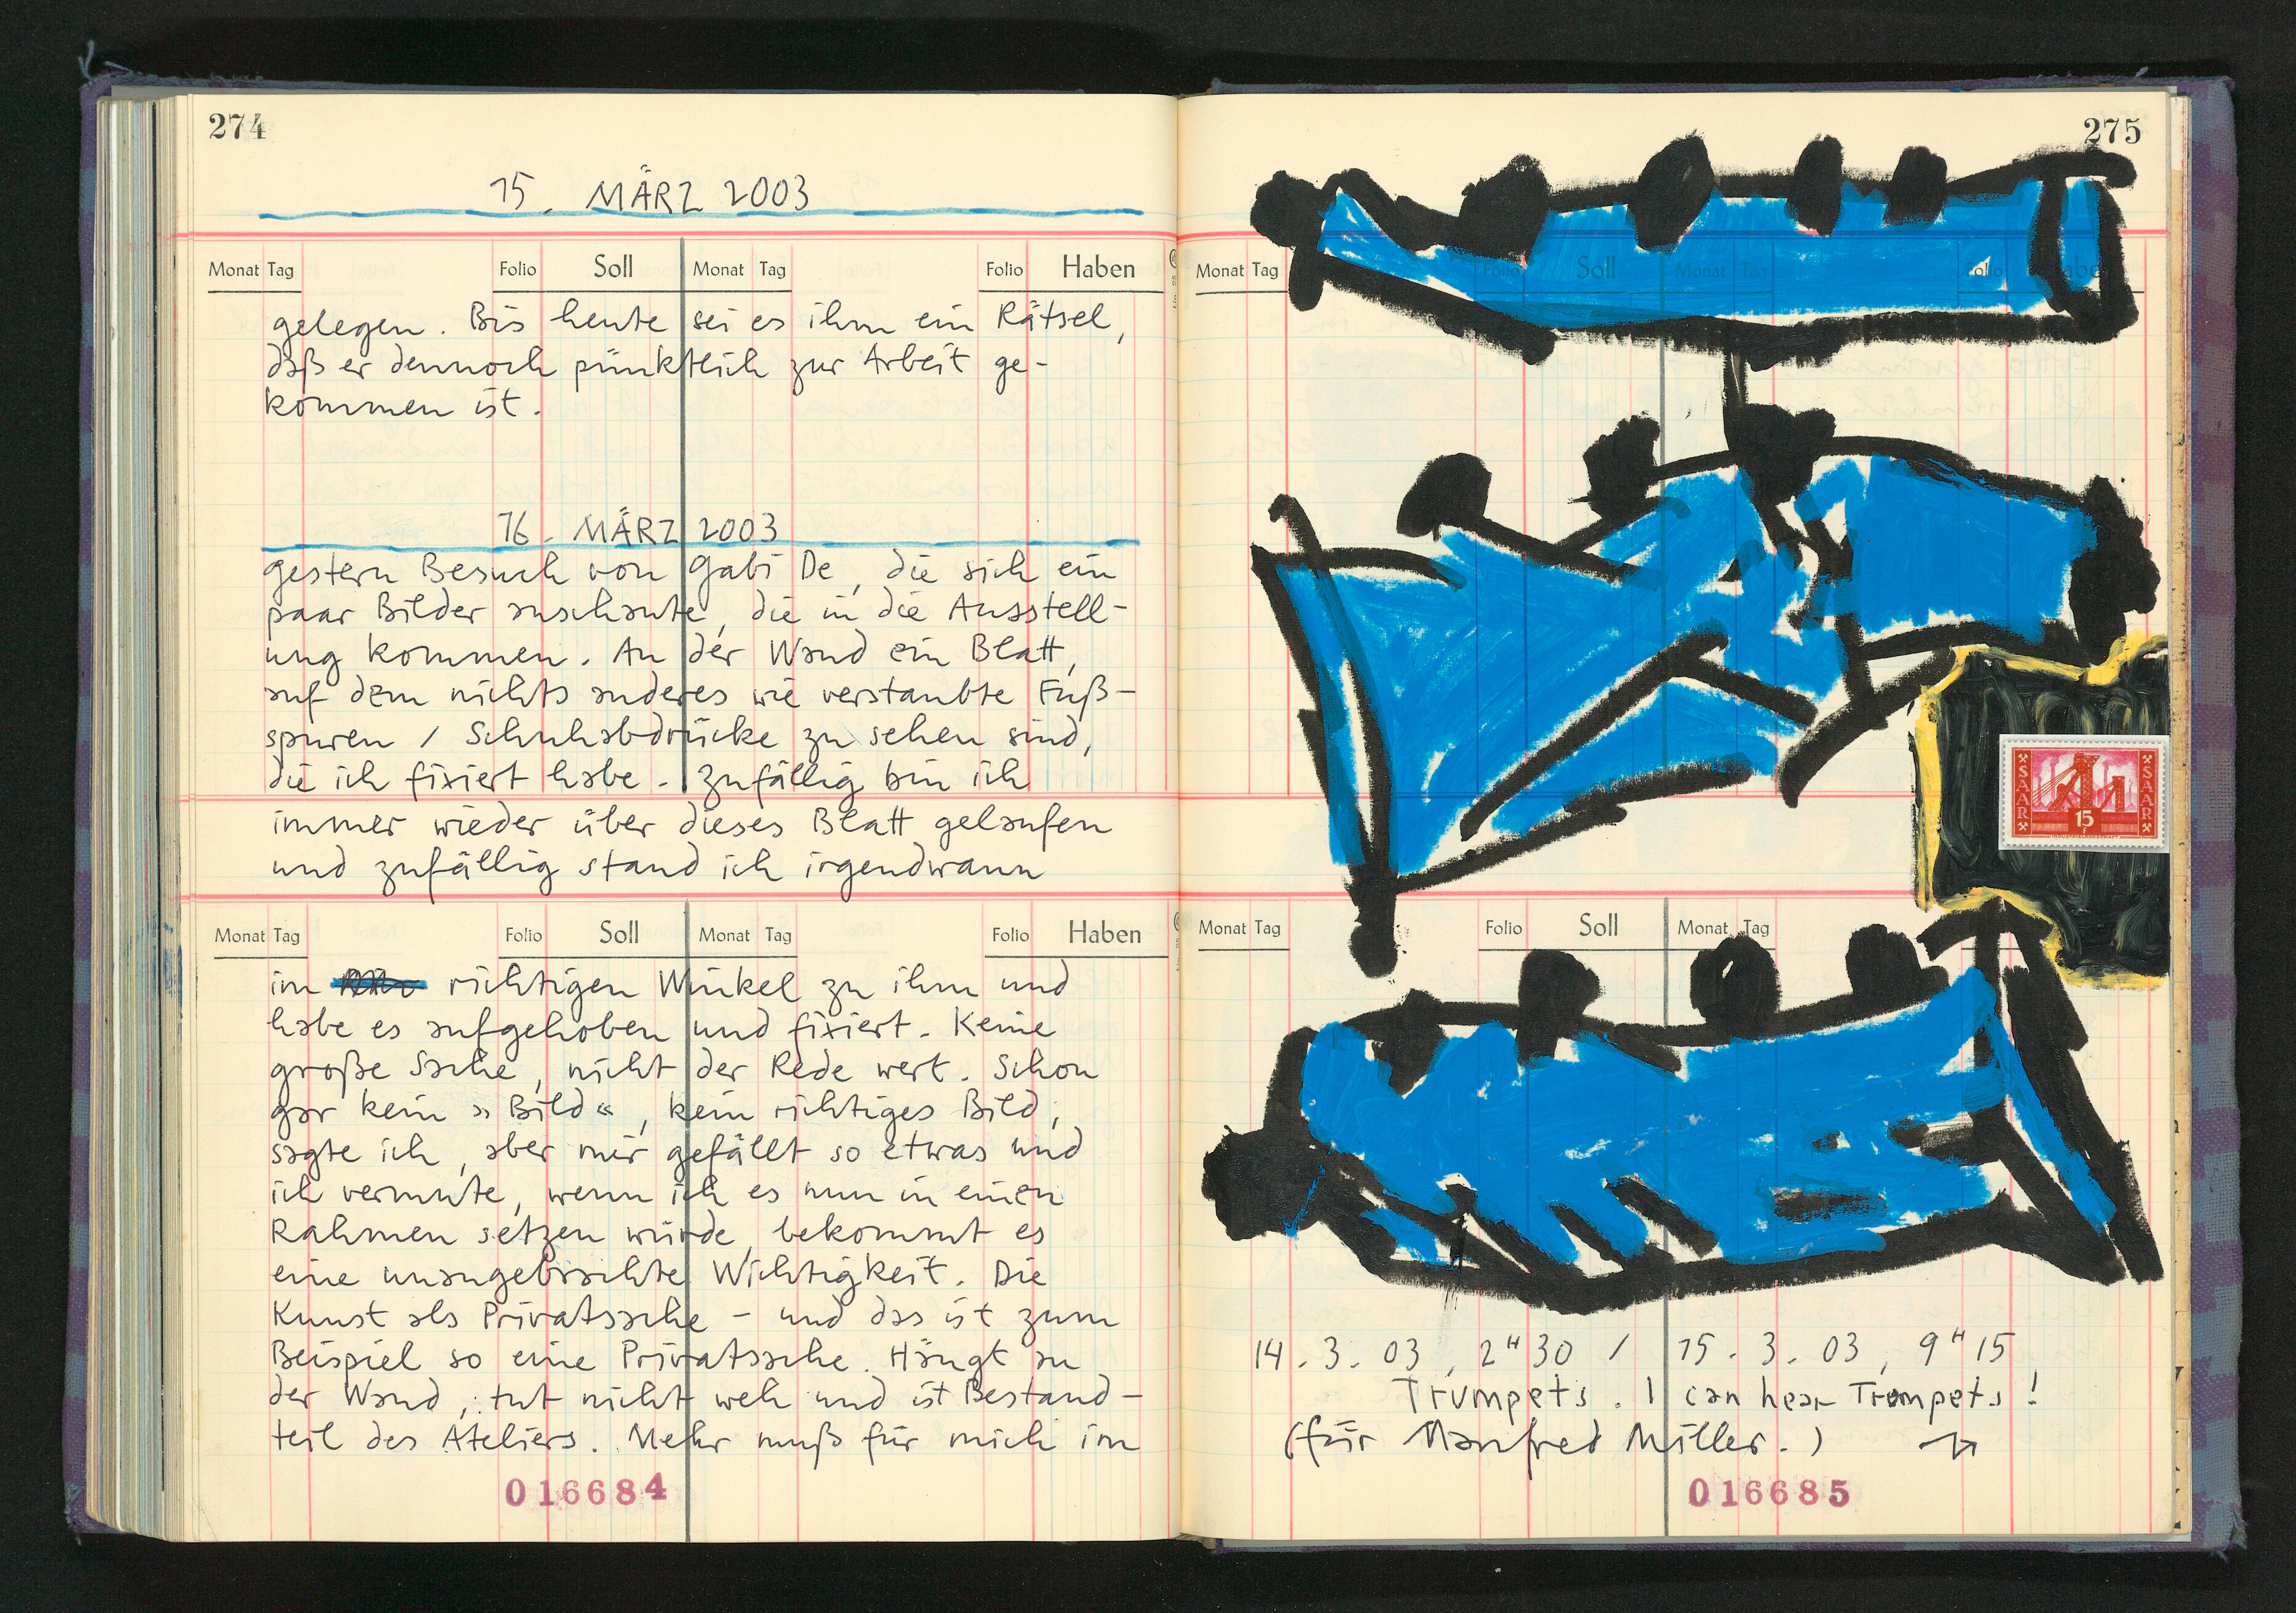 274
15. MÄRZ 2003
Monat Tag Folio Soll Monat Tag Folio Haben
gelegen. Bis heute sei es ihm ein Rätsel,
daß er dennoch pünktlich zur Arbeit ge-
kommen ist.
16. MÄRZ 2003
gestern Besuch von Gabi De, die sich ein
paar Bilder anschaute, die in die Ausstell-
ung kommen. An der Wand ein Blatt,
auf dem nichts anderes wie verstaubte Fuß-
spuren / Schuhabdrücke zu sehen sind,
die ich fixiert habe. Zufällig bin ich
immer wieder über dieses Blatt gelaufen
und zufällig stand ich irgendwann
Monat Tag Folio Soll Monat Tag Folio Haben
im richtigen Winkel zu ihm und
habe es aufgehoben und fixiert. Keine
große Sache, nicht der Rede wert. Schon
gar kein »Bild«, kein richtiges Bild,
sagte ich, aber mir gefällt so etwas und
ich vermute, wenn ich es nun in einen
Rahmen setzen würde, bekommt es
eine unangebrachte Wichtigkeit. Die
Kunst als Privatsache – und das ist zum
Beispiel so eine Privatsache. Hängt an
der Wand, tut nicht weh und ist Bestand-
teil des Ateliers. Mehr muß für mich im
016684
275
Monat Tag Folio Soll Monat Tag Folio Haben
SAAR 15 SAAR
Monat Tag Folio Soll Monat Tag
14. 3. 03, 2H30 / 15. 3. 03, 9H15
Trumpets. I can hear Trumpets!
(für Manfred Miller.) →
016685